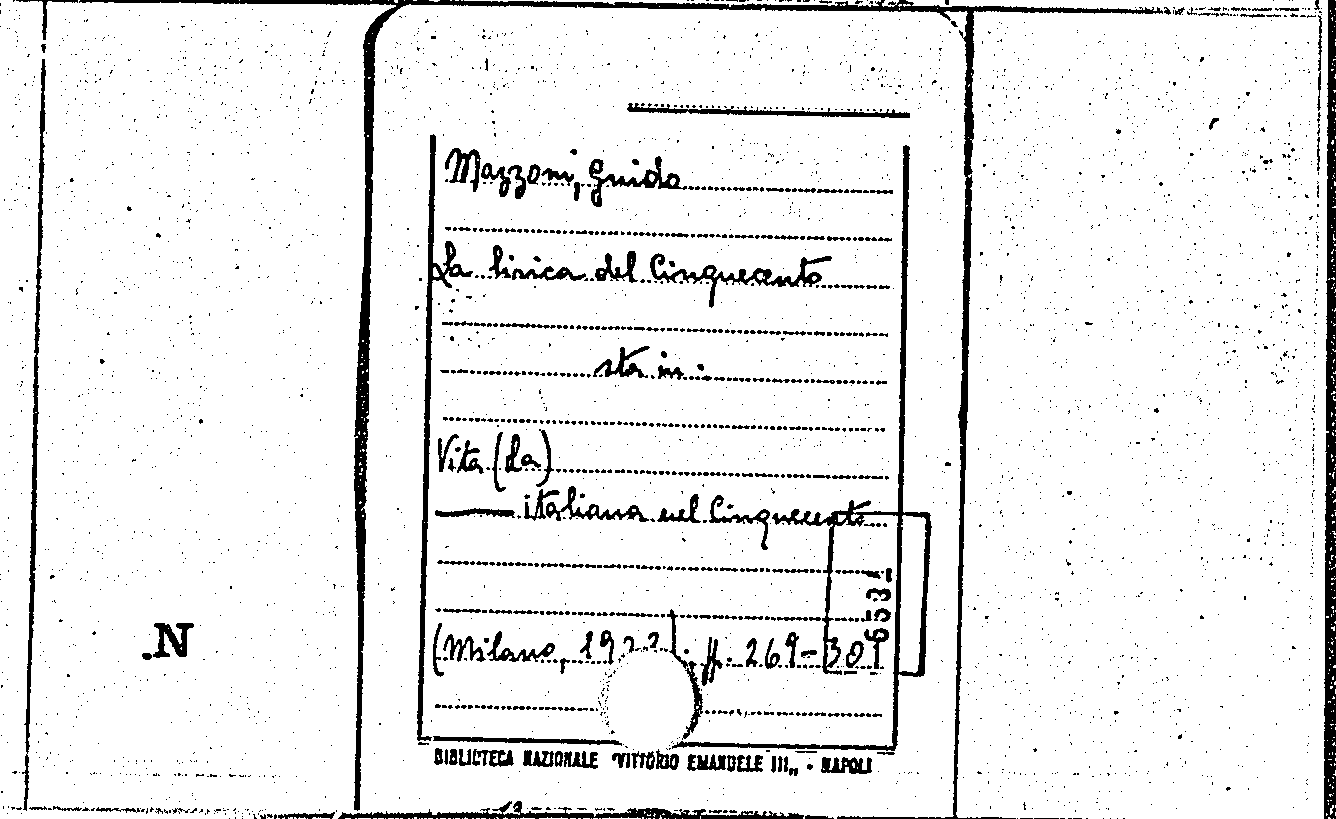 Mazzoni, Guido
La lirica del Cinquecento
sta in :
Vita (La)
—— italiana nel Cinquecento
(Milano, 1922) ; ff. 269-309
BIBLIOTECA NAZIONALE "VITTORIO EMANUELE III„ - NAPOLI
N.